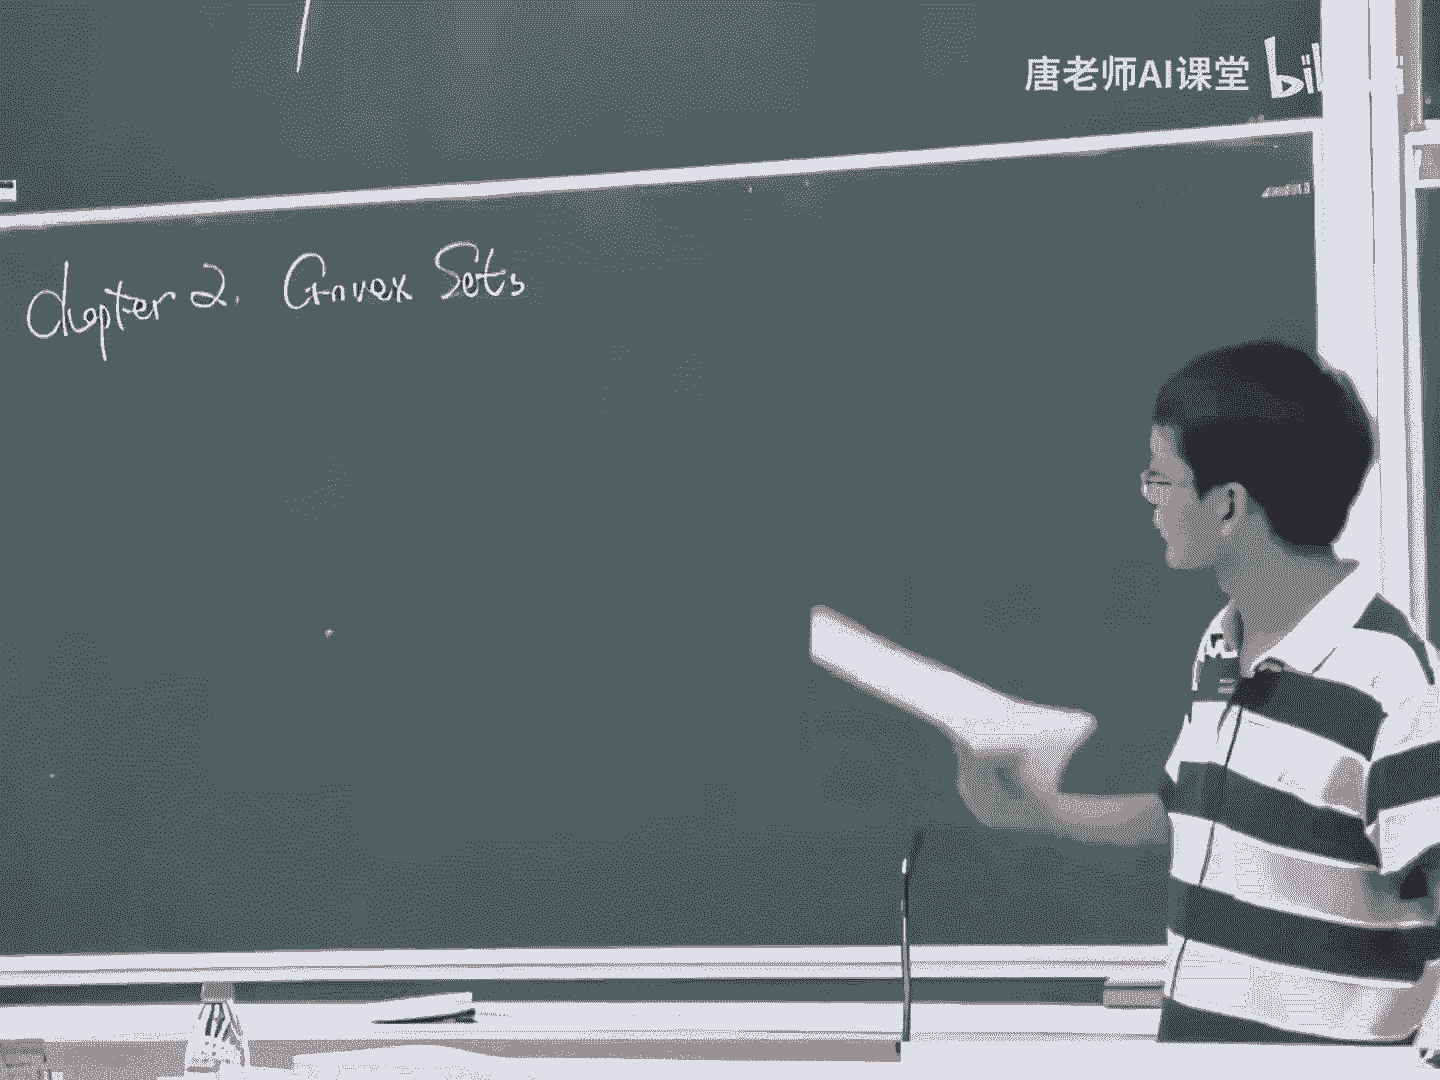 唐老师AI课堂
Chapter 2. Convex Sets